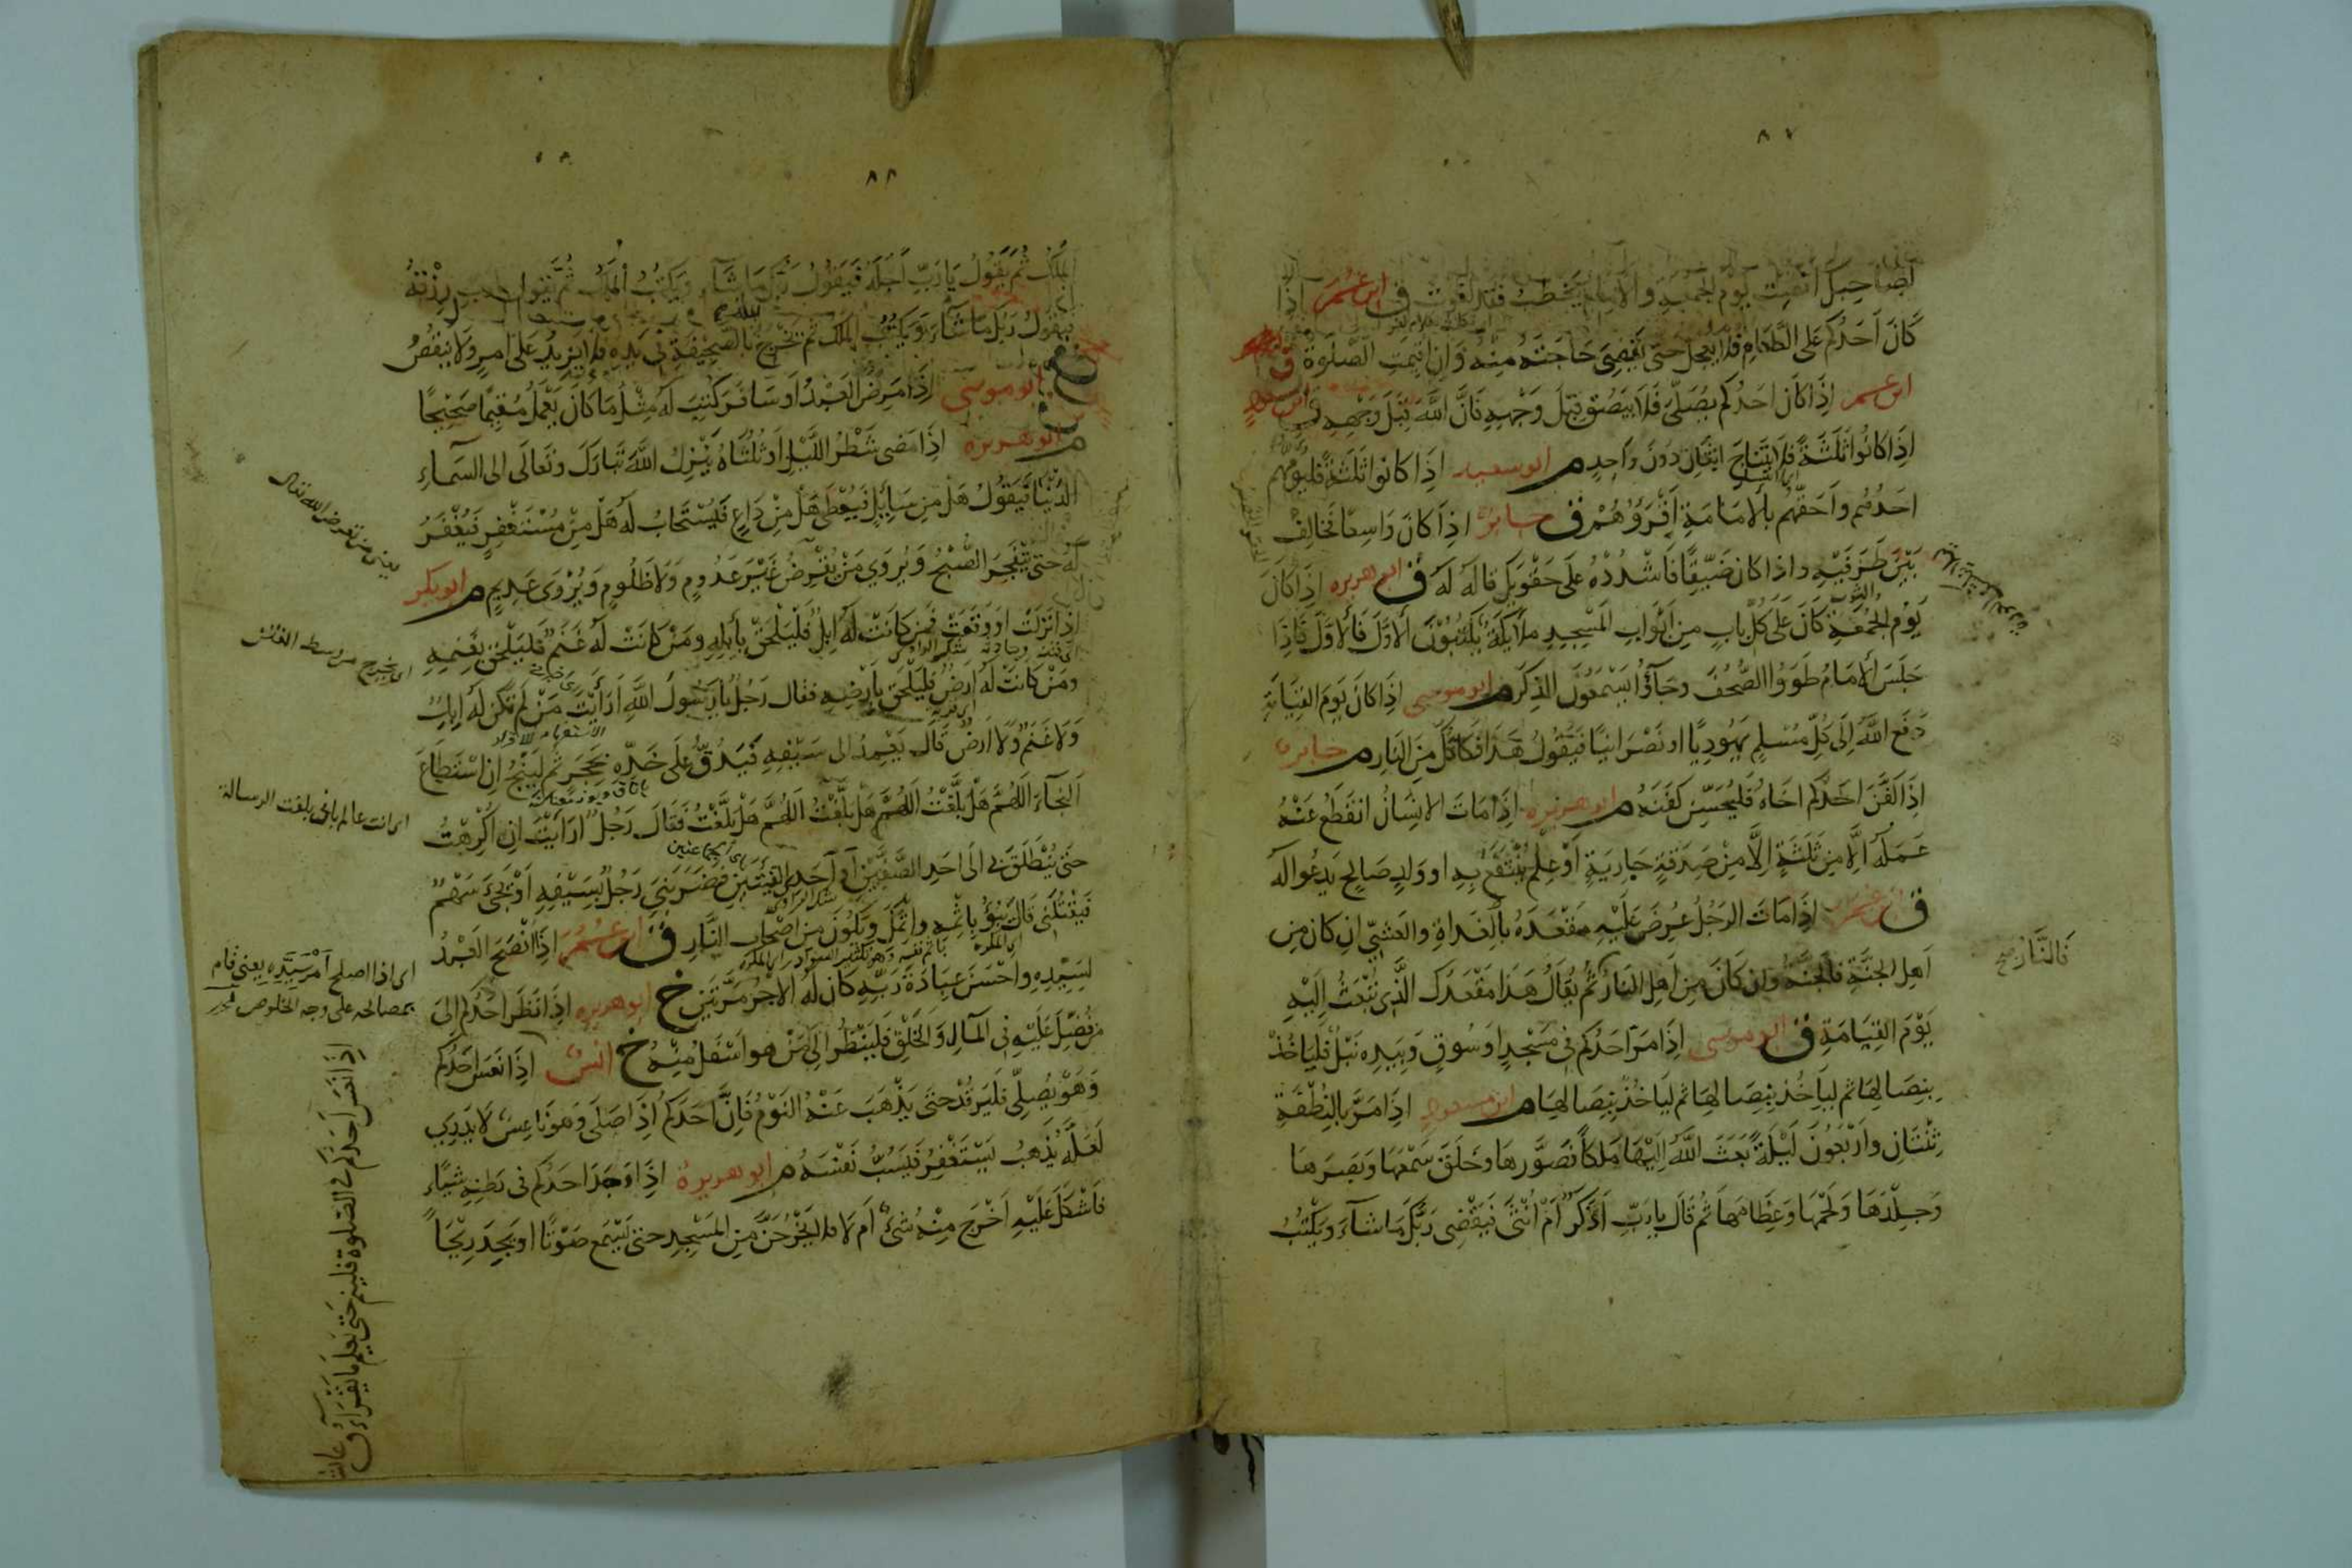 ٨٧
لصاحبك انصت يوم الجمعة والامام يخطب فقد لغوت ق ابن عمر اذا
كَانَ اَحَدُكُمْ عَلَى الطَّعَامِ فلا يعجل حتى يَقْضِىَ حَاجَتَهُ مِنْهُ وَاِنْ اُقِيمَتِ الصَّلوةُ ق
ابن عمر اِذَا كَانَ اَحَدُكُم يُصَلِّى فَلَا يَبْصُقْ قِبَلَ وَجْهِهِ فَاِنَّ اللَّهَ قِبَلَ وَجْهِهِ ق ابن مسعود
اِذَا كَانُوا ثَلَثَةً فَلَا يَتَنَاجَ اثْنَانِ دُونَ وَاحِدٍ م ابو سعيد اِذَا كَانُوا ثَلَثَةً فَلْيَؤُمَّهُمْ
اَحَدُهُم وَاَحَقُّهُم بِالْاِمَامَةِ اَقْرَؤُهُمْ ق جابر اِذَا كَانَ وَاسِعًا فَخَالِفْ
بَيْنَ طَرَفَيْهِ واذا كان ضَيِّقًا فَاشْدُدْهُ عَلَى حَقْوَيْكَ قاله لَهُ ق ابو هريره اِذَا كَانَ
يَوْمُ الجُمُعَةِ كَانَ عَلَى كُلِّ بَابٍ مِن اَبْوَابِ المَسْجِدِ مَلَائِكَةٌ يَكْتُبُونَ الاَوَّلَ فَالاَوَّلَ فَاِذَا
جَلَسَ الاِمَامُ طَوَوُا الصُّحُفَ وَجَآؤُا يَسْتَمِعُونَ الذِّكْرَ م ابو موسى اِذَا كَانَ يَوْمَ القِيَامَةِ
دَفَعَ اللَّهُ اِلَى كُلِّ مُسْلِمٍ يَهُودِيًّا او نَصْرَانِيًّا فَيَقُولُ هَذَا فَكَاكُكَ مِنَ النَّارِ م جابر
اِذَا كَفَّنَ اَحَدُكُم اَخَاهُ فَلْيُحَسِّنْ كَفَنَهُ م ابو هريره اِذَا مَاتَ الاِنْسَانُ انقَطَعَ عَنْهُ
عَمَلُهُ اِلَّا مِنْ ثَلَثَةٍ اِلَّا مِنْ صَدَقَةٍ جَارِيَةٍ اَوْ عِلْمٍ يُنْتَفَعُ بِهِ او وَلَدٍ صَالِحٍ يَدْعُوا لَهُ
ق ابن عمر اِذَا مَاتَ الرَّجُلُ عُرِضَ عَلَيْهِ مَقْعَدَهُ بِالْغَدَاةِ والعَشِيِّ اِنْ كَانَ مِن
اَهلِ الجَنَّةِ فَالجَنَّةُ وَاِنْ كَانَ مِن اَهلِ النَّارِ ثُمَّ يُقَالُ هَذَا مَقْعَدُكَ الَّذِى تُبْعَثُ اِلَيْهِ
فَالنَّارُ صح
يَوْمَ القِيَامَةِ ق ابو موسى اِذَا مَرَّ اَحَدُكُم فِى مَسْجِدٍ اَوْ سُوقٍ وَبِيَدِهِ نَبْلٌ فَلْيَاْخُذْ
بِنِصَالِهَا ثم ليَاْخُذْ بِنِصَالِهَا ثم ليَاْخُذْ بِنِصَالِهَا م ابن مسعود اِذَا مَرَّ بِالنُّطْفَةِ
ثِنْتَانِ وَاَرْبَعُونَ لَيْلَةً بَعَثَ اللَّهُ اِلَيْهَا مَلَكًا فَصَوَّرَهَا وخَلَقَ سَمْعَهَا وَبَصَرَهَا
وَجِلْدَهَا وَلَحْمَهَا وَعِظَامَهَا ثُمَّ قَالَ يَا رَبِّ اَذَكَرٌ اَمْ اُنْثَى فَيَقْضِى رَبُّكَ مَا شَآءَ وَيَكْتُبُ
٨٨
المَلَكُ ثُمَّ يَقُولُ يَا رَبِّ اَجَلَهُ فَيَقُولُ رَبُّكَ مَا شَآءَ وَيَكْتُبُ المَلَكُ ثُمَّ يَقُولُ يا رب رِزْقَهُ
فيقول رَبُّكَ مَا شَآءَ وَيَكْتُبُ المَلَكُ ثم يَخْرُجُ بِالصَّحِيفَةِ فِى يَدِهِ فلا يَزِيدُ عَلَى اَمْرٍ وَلَا يَنْقُصُ
خ ابو موسى اِذَا مَرِضَ العَبْدُ اَوْ سَافَرَ كُتِبَ لَهُ مِثْلُ مَا كَانَ يَعْمَلُ مُقِيمًا صَحِيحًا
م ابو هريره اِذَا مَضَى شَطْرُ اللَّيْلِ اَوْ ثُلُثَاهُ يَنْزِلُ اللَّهُ تَبَارَكَ وَتَعَالَى اِلَى السَّمَآءِ
الدُّنْيَا فَيَقُولُ هَلْ مِن سَائِلٍ فَيُعْطَى هَلْ مِنْ دَاعٍ فَيُسْتَجَابُ لَهُ هَلْ مِنْ مُسْتَغْفِرٍ فَيُغْفَرُ
لَهُ حَتى يَنْفَجِرَ الصُّبْحُ وَيُرْوَى مَنْ يُقْرِضُ غَيْرَ عَدُومٍ وَلَا ظَلُومٍ وَيُرْوَى عَدِيمٍ م ابو بكر
اِذَا نَزَلَتْ او وَقَعَتْ فَمَنْ كَانَتْ لَهُ اِبِلٌ فَلْيَلْحَقْ بِاِبِلِهِ وَمَنْ كَانَتْ لَهُ غَنَمٌ فَلْيَلْحَقْ بِغَنَمِهِ
وَمَنْ كَانَتْ لَهُ اَرْضٌ فَلْيَلْحَقْ بِاَرْضِهِ فقال رَجُلٌ يَا رَسُولَ اللَّهِ اَرَاَيْتَ مَنْ لَمْ تَكُنْ لَهُ اِبِلٌ
وَلَا غَنَمٌ وَلَا اَرْضٌ قَالَ يَعْمِدُ اِلى سَيْفِهِ فَيَدُقُّ عَلَى حَدِّهِ بِحَجَرٍ ثُمَّ لْيَنْجُ اِنِ اسْتَطَاعَ
النَّجَآءَ اَللّٰهُمَّ هَلْ بَلَّغْتُ اللّٰهُمَّ هَلْ بَلَّغْتُ اللّٰهُمَّ هَلْ بَلَّغْتُ فَقَالَ رَجُلٌ اَرَاَيْتَ اِنْ اُكْرِهْتُ
حَتى يُنْطَلَقَ بِى اِلَى اَحَدِ الصَّفَّيْنِ اَوْ اَحَدِ الفِئَتَيْنِ فَضَرَبَنِى رَجُلٌ بِسَيْفِهِ اَوْ يَجِىءُ سَهْمٌ
فَيَقْتُلُنِى قَالَ يَبُوْءُ بِاِثْمِهِ وَاِثْمِكَ وَيَكُونُ مِن اَصْحَابِ النَّارِ ق ابن عمر اِذَا نَصَحَ العَبْدُ
لِسَيِّدِهِ وَاَحْسَنَ عِبَادَةَ رَبِّهِ كَانَ لَهُ الاَجْرُ مَرَّتَيْنِ خ ابو هريره اِذَا نَظَرَ اَحَدُكُم اِلَى
مَنْ فُضِّلَ عَلَيْهِ فِى المَالِ وَالخَلْقِ فَلْيَنْظُرْ اِلَى مَنْ هو اَسْفَلُ مِنْهُ خ انس اِذَا نَعَسَ اَحَدُكُم
وَهُوَ يُصَلِّى فَلْيَرْقُدْ حَتى يَذْهَبَ عَنْهُ النَّوْمُ فَاِنَّ اَحَدَكُم اِذَا صَلَّى وَهُوَ نَاعِسٌ لَا يَدْرِى
لَعَلَّهُ يَذْهَبُ يَسْتَغْفِرُ فَيَسُبُّ نَفْسَهُ م ابو هريرة اِذَا وَجَدَ اَحَدُكُم فى بَطْنِهِ شَيْئًا
فَاَشْكَلَ عَلَيْهِ اَخَرَجَ مِنْهُ شَىْءٌ اَمْ لَا فلا يَخْرُجَنَّ مِنَ المَسْجِدِ حَتى يَسْمَعَ صَوْتًا او يَجِدَ رِيحًا
يعنى من يقرض الله تعالى
اى انت عالم بانى بلغت الرسالة
اى اذا اصلح اَمْرَ سَيِّدِهِ يعنى قام
بمصالحه على وجه الخلوص
اِذَا نَعَسَ اَحَدُكُم فى الصَّلوة فلينم حَتى يَعْلَمَ مَا يَقْرَأُ